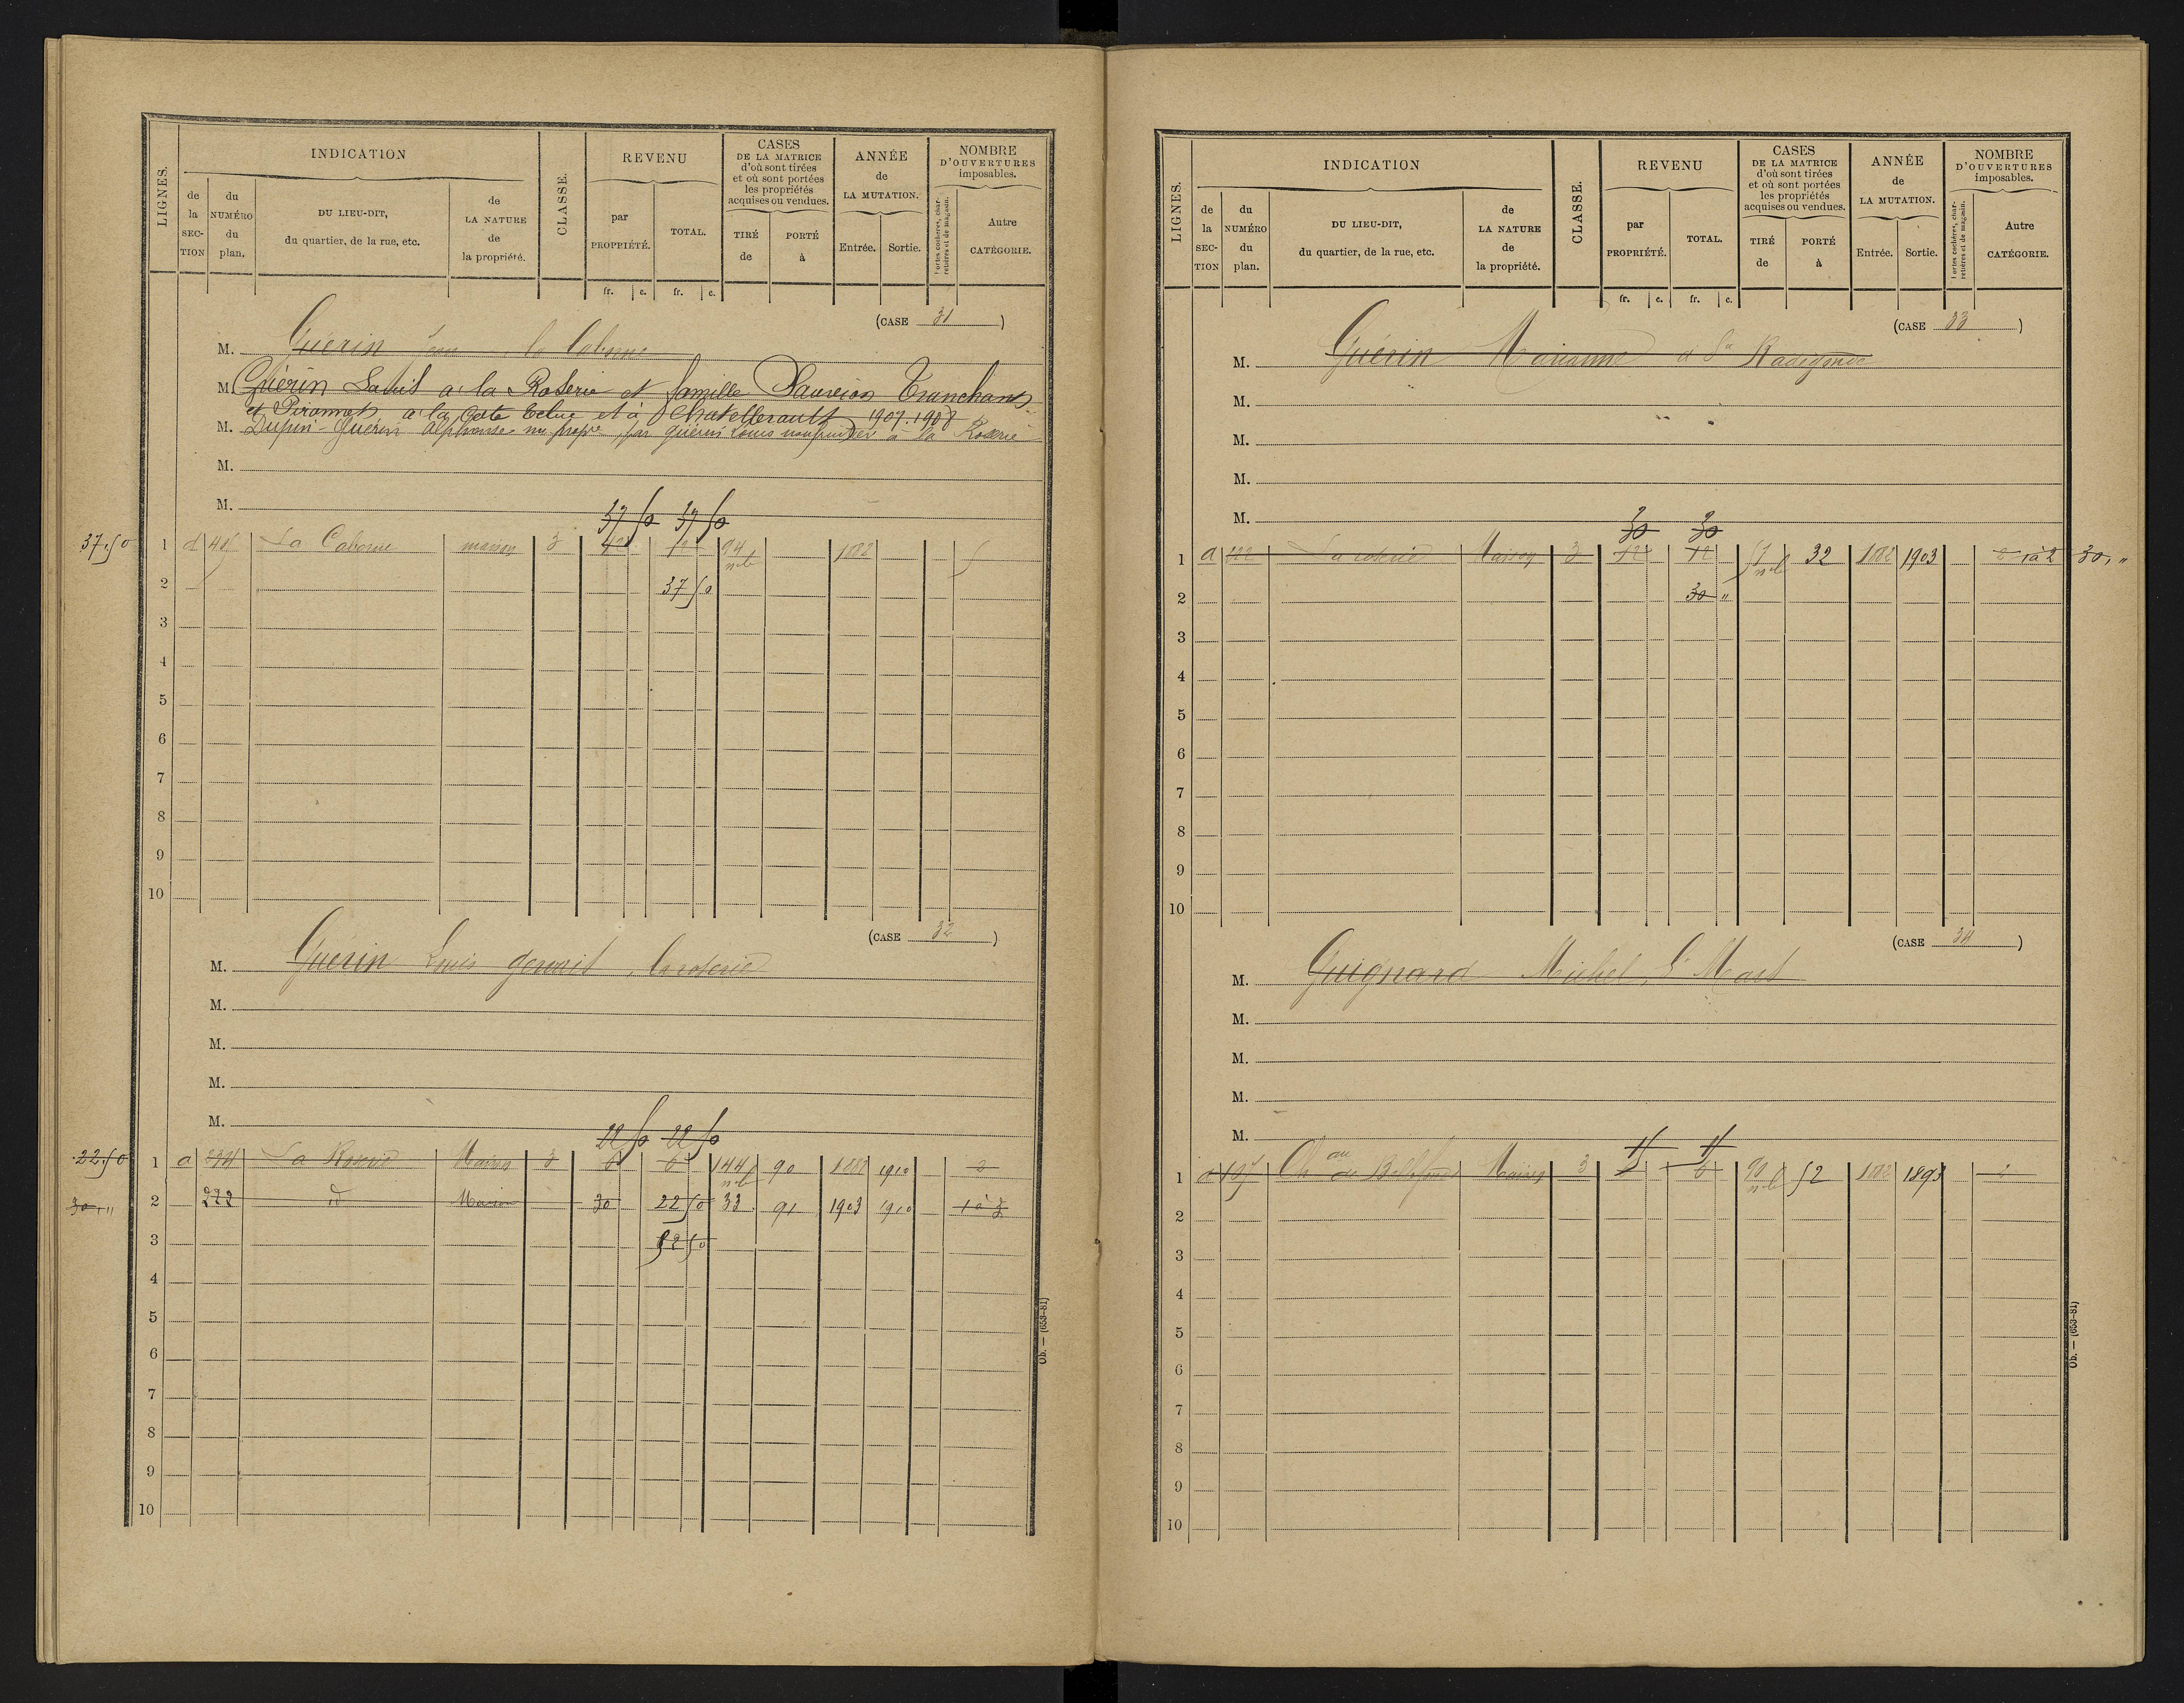 LIGNES.
INDICATION
de la SECTION
du NUMÉRO du plan.
DU LIEU-DIT, du quartier, de la rue, etc.
de LA NATURE de la propriété.
CLASSE.
REVENU
par PROPRIÉTÉ.
TOTAL.
fr. c. fr. c.
CASES DE LA MATRICE d'où sont tirées et où sont portées les propriétés acquises ou vendues.
TIRÉ de
PORTÉ à
ANNÉE de LA MUTATION.
Entrée. Sortie.
NOMBRE D'OUVERTURES imposables.
Portes cochères, charretières et de magasin.
Autre CATÉGORIE.
(CASE 31)
M. Guérin Jean
M. Guérin Louis à la Roserie et famille Tranchant
et à Chatellerault 1907.1908
M. Dupin-Guérin Alphonse nu propre par Guérin Louis usufruitier à la Roserie
M.
M.
37 50 37 50
37.50 1 d La maison 3 12 12 94 1882 5
2 37 50
3
4
5
6
7
8
9
10
(CASE 32)
M. Guérin Louis la roserie
M.
M.
M.
M.
22 50 22 50
22.50 1 a 234 La Roserie Maison 3 6 6 144 90 1882 1910 2
30," 2 222 d Maison 30 22 50 33 91 1903 1910 1 à 3
3 52 50
4
5
6
7
8
9
10
Ob. — (653-81)
LIGNES.
INDICATION
de la SECTION
du NUMÉRO du plan.
DU LIEU-DIT, du quartier, de la rue, etc.
de LA NATURE de la propriété.
CLASSE.
REVENU
par PROPRIÉTÉ.
TOTAL.
fr. c. fr. c.
CASES DE LA MATRICE d'où sont tirées et où sont portées les propriétés acquises ou vendues.
TIRÉ de
PORTÉ à
ANNÉE de LA MUTATION.
Entrée. Sortie.
NOMBRE D'OUVERTURES imposables.
Portes cochères, charretières et de magasin.
Autre CATÉGORIE.
(CASE 33)
M. Guérin Marianne à Ste Radegonde
M.
M.
M.
M.
30 30
1 a 222 La roserie Maison 3 12 12 32 1882 1903 2 1 à 2 30,"
2 30 "
3
4
5
6
7
8
9
10
(CASE 34)
M. Guignard Michel St Mars
M.
M.
M.
M.
1 107 Chau de Bellefond Maison 3 6 90 52 1882 1893 2
2
3
4
5
6
7
8
9
10
Ob. — (653-81)